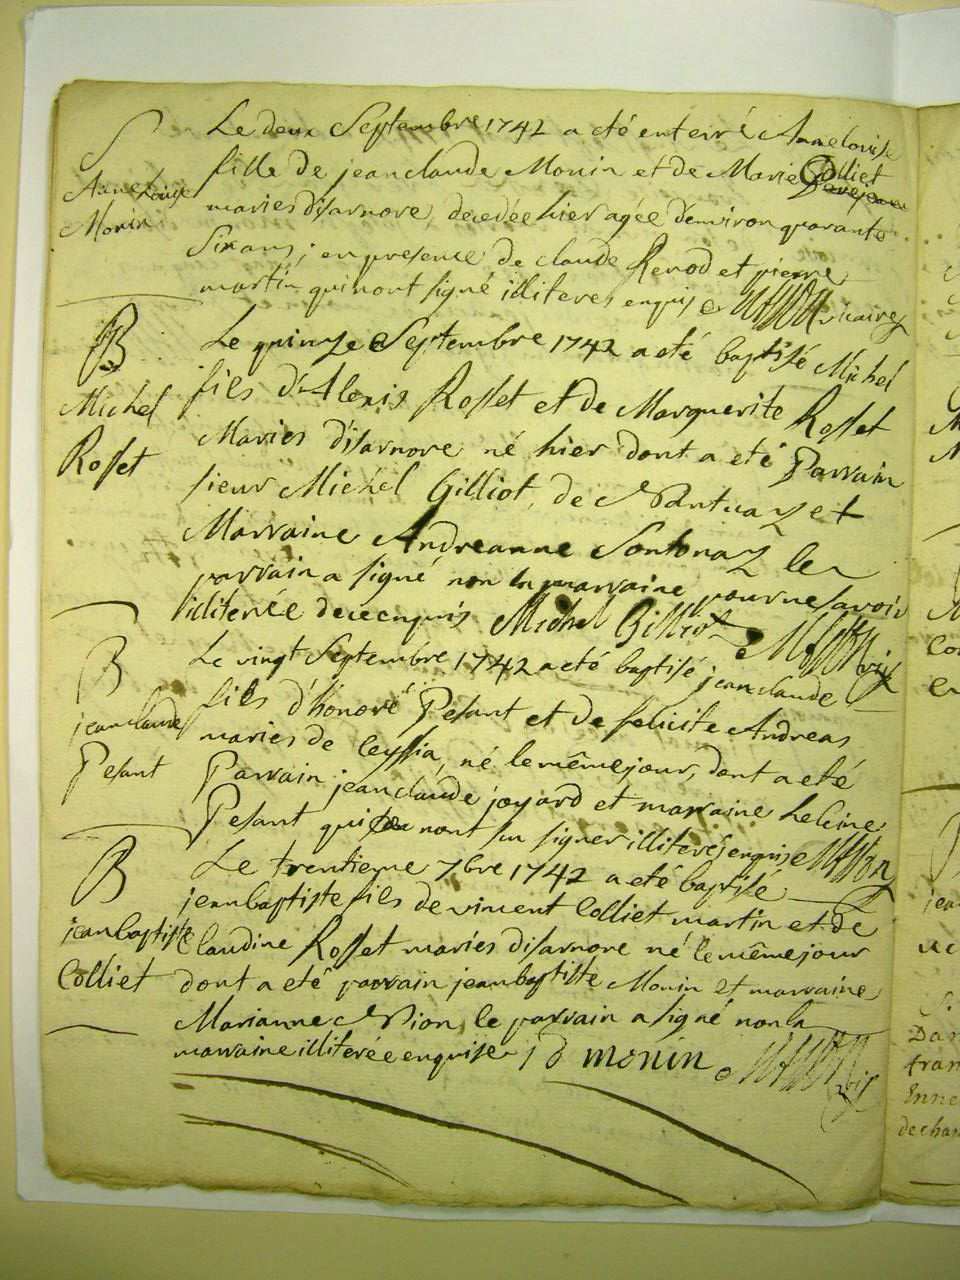 S
Anne Louise
Monin
Le deux Septembre 1742 a eté enterré Anne lovise
fille de jean claude Monin et de Marie Colliet
maries disarnore, decedée hier agée denviron quarante
Six ans; en presence de claude Renod et pierre
martin qui nont signé illiteres enquis vicaire
B
Michel
Rosset
Le quinze Septembre 1742 a eté baptisé Michel
fils d'Alexis Rosset et de Marguerite Rosset
Maries disarnore né hier dont a eté Parrain
sieur Michel Gilliot, de Nantua et
Marraine Andreanne Sontonaz le
parrain a signé non la marraine pour ne savoir
illiterée de ce enquis Michel Gilliot
B
jean claude
Pesant
Le vingt Septembre 1742 a eté baptisé jean claude
fils d'honoré Pesant et de felicite Andreas
maries de Ceyssia, né le même jour, dont a eté
Parrain jean claude joyard et marraine heleine
Pesant qui nont su signer illiterés enquis
B
jean baptiste
Colliet
Le trentieme 7bre 1742 a eté baptisé
jean baptiste fils de vincent Colliet martin et de
Claudine Rosset maries disarnore né le même jour
dont a eté parrain jean baptiste Monin et marraine
Marianne Nion, le parrain a signé non la
marraine illiterée enquise j d monin